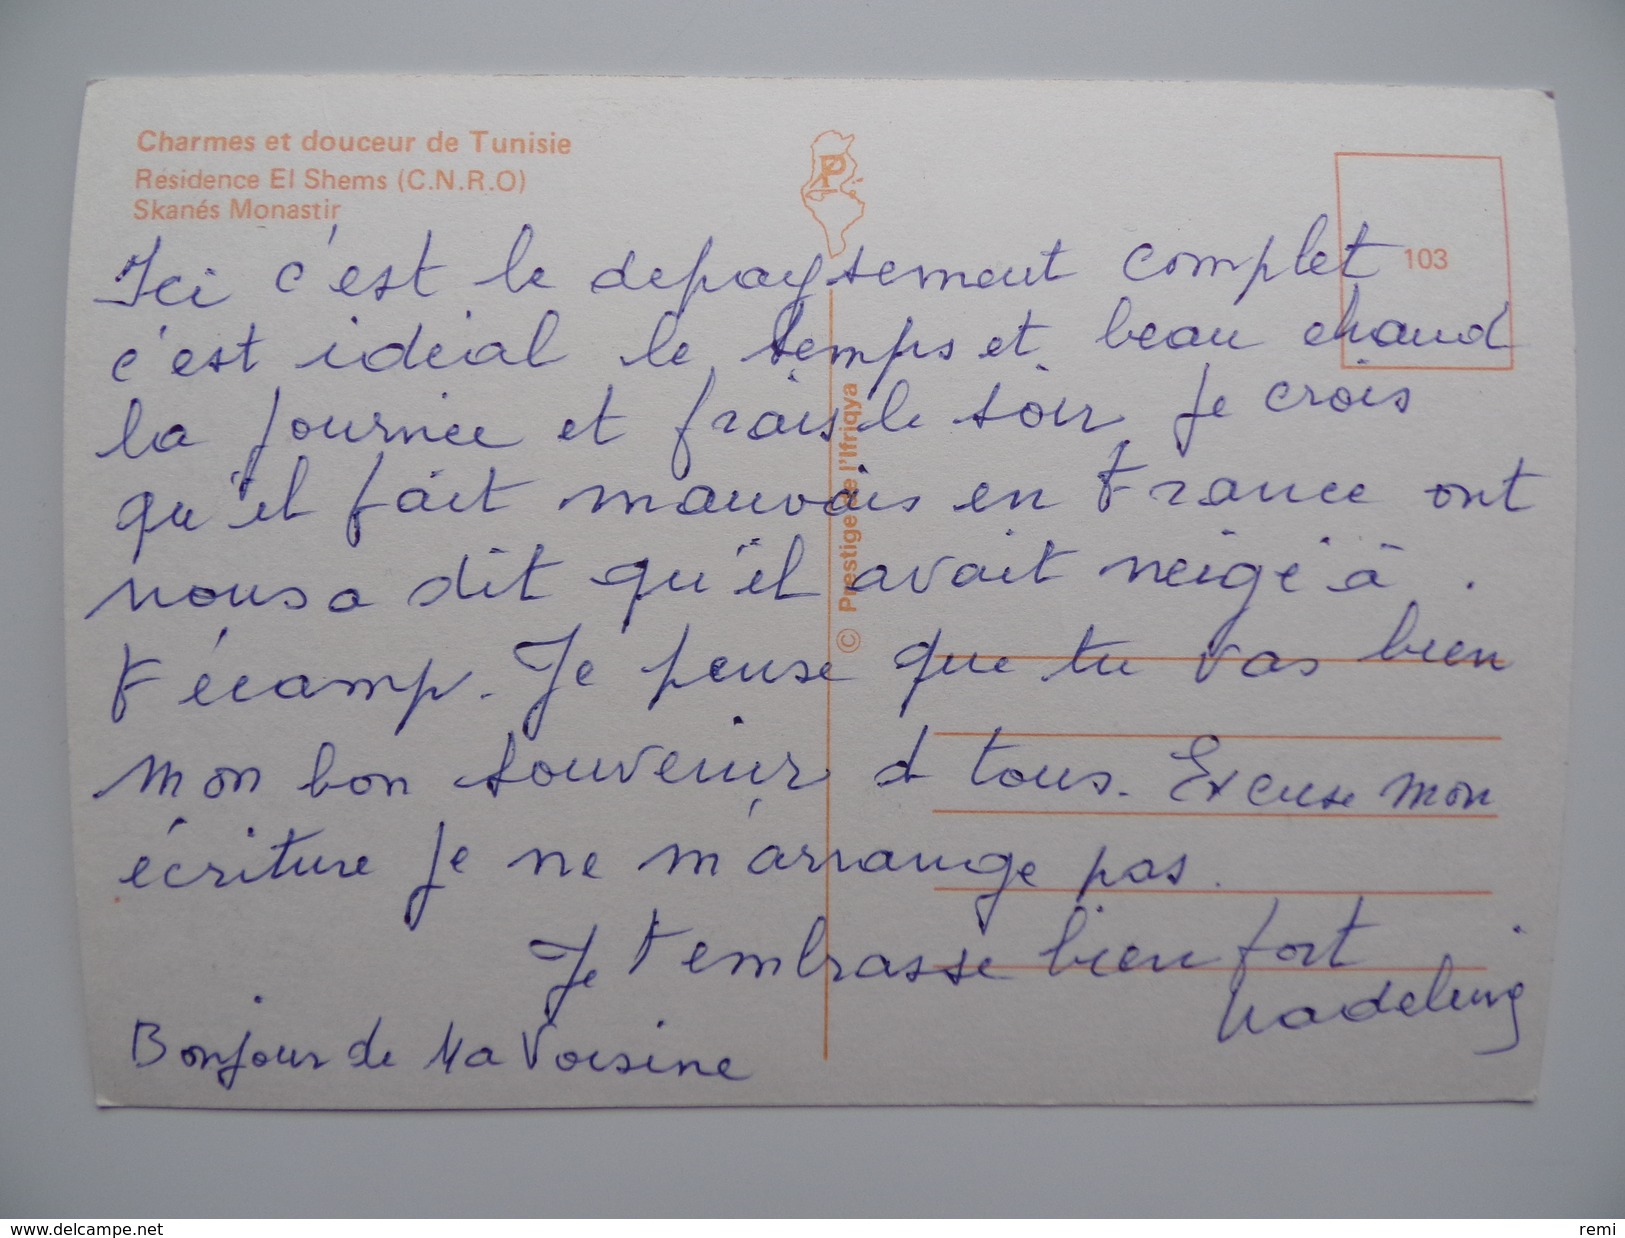 Charmes et douceur de Tunisie
Résidence El Shems (C.N.R.O)
Skanés Monastir
P
103
© Prestige de l'Ifriqya
Ici c'est le depaysement complet
c'est ideial le temps et beau chaud
la journée et frais le soir Je crois
qu'il fait mauvais en France ont
nous a dit qu'il avait neigé à
Fécamp. Je pense que tu vas bien
mon bon souvenir a tous. Excuse mon
écriture je ne m'arrange pas.
Je t'embrasse bien fort
Madeleine
Bonjour de Ma Voisine
www.delcampe.net
remi